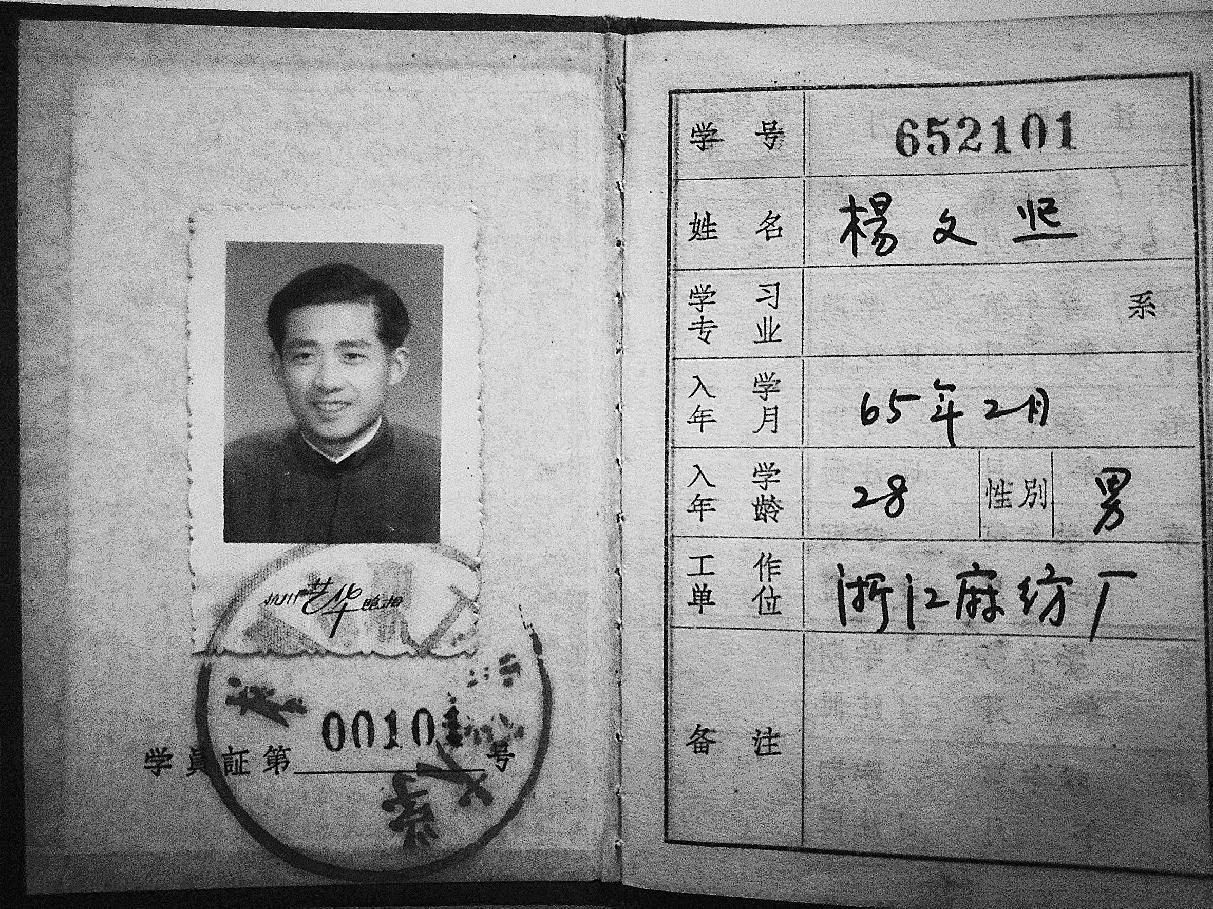 艺华
学員証第00101号
学号 652101
姓名 楊文熙
学习专业 系
入学年月 65年2月
入学年龄 28 性別 男
工作单位 浙江麻纺厂
备注